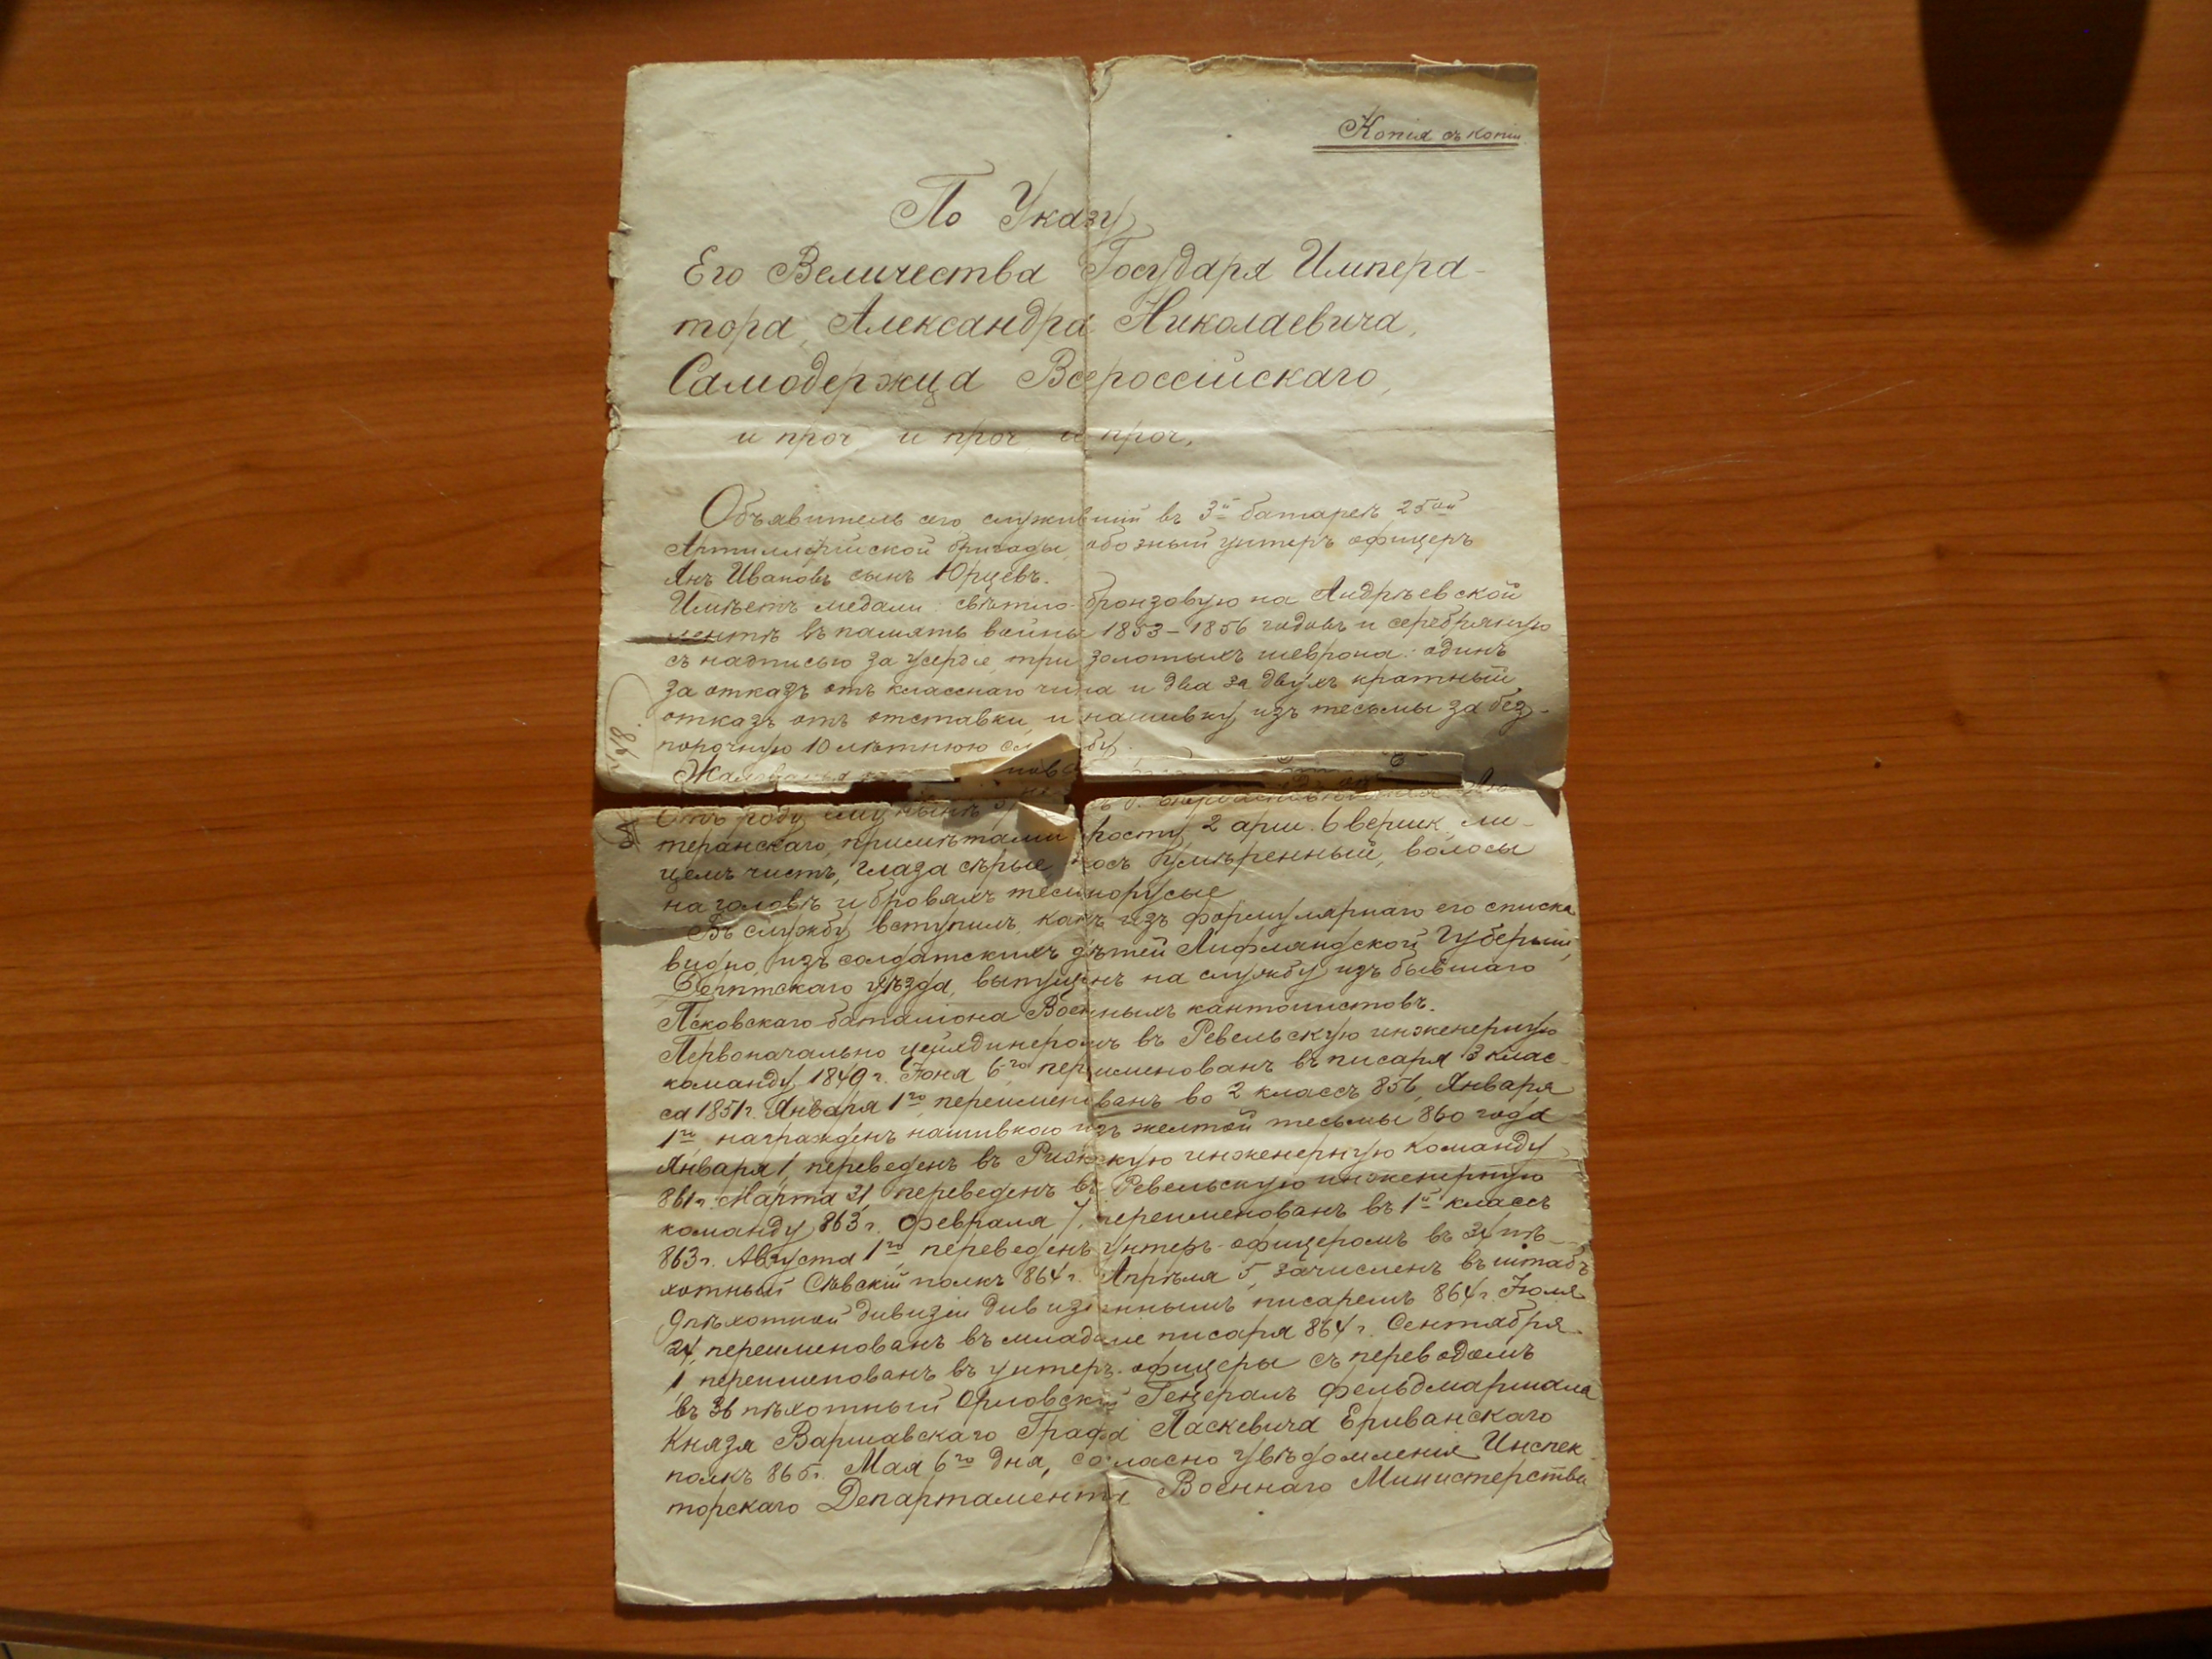 Копія съ копіи
По Указу
Его Величества Государя Импера-
тора, Александра Николаевича,
Самодержца Всероссійскаго,
и проч, и проч, и проч,
Объявитель сего, служившій въ 3й батареѣ 25ой
Артиллерійской бригады, обозный унтеръ офицеръ
Янъ Ивановъ сынъ Юрцевъ.
Имѣетъ медали: свѣтло-бронзовую на Андреѣвской
лентѣ въ память войны 1853-1856 годовъ и серебряную
съ надписью за усердіе, три золотыхъ шеврона: одинъ
за отказъ отъ класснаго чина и два за двухъ кратный
отказъ отъ отставки, и нашивку изъ тесьмы за без-
порочную 10 лѣтнюю
Отъ роду ему нынѣ
теранскаго, примѣтами: росту 2 арш. 6 вершк, ли-
цемъ чистъ, глаза сѣрые, носъ умѣренный, волосы
на головѣ и бровяхъ темнорусые
Въ службу вступилъ, какъ изъ формулярнаго его списка
видно, изъ солдатскихъ дѣтей Лифляндской Губерніи,
Дерптскаго уѣзда, выпущенъ на службу изъ бывшаго
Псковскаго баталіона Военныхъ кантонистовъ.
Первоначально цейхдинеромъ въ Ревельскую инженерную
команду 1849 г. Іюня 6го, переименованъ въ писаря 3 клас-
са 1851 г. Января 1го, переименованъ во 2 классъ 856, Января
1го, награжденъ нашивкою изъ желтой тесьмы 860 года
Января 1, переведенъ въ Рижскую инженерную команду
861 г. Марта 31, переведенъ въ Ревельскую инженерную
команду 863 г. Февраля 7, переименованъ въ 1й классъ
863 г. Августа 1го, переведенъ унтеръ-офицеромъ въ 34 пѣ-
хотный Сѣвскій полкъ 864 г. Апрѣля 5, зачисленъ въ штабъ
9 пѣхотной дивизіи дивизіоннымъ писаремъ 864 г. Іюля
24, переименованъ въ младшіе писаря 864 г. Сентября
1, переименованъ въ унтеръ-офицеры съ переводомъ
въ 36 пѣхотный Орловскій Генералъ Фельдмаршала
Князя Варшавскаго Графа Паскевича Ериванскаго
полкъ 865 г. Мая 6го дня, согласно увѣдомленія Инспек-
торскаго Департамента Военнаго Министерства